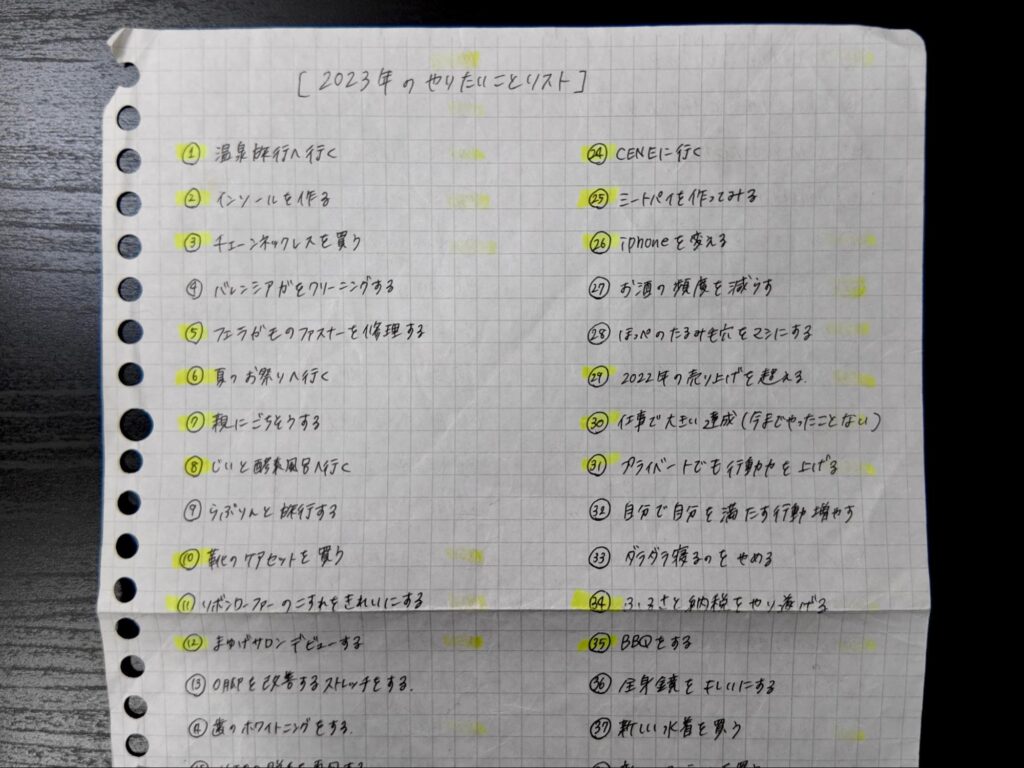 [2023年のやりたいことリスト]
① 温泉旅行へ行く
② インソールを作る
③ チェーンネックレスを買う
④ バレンシアガをクリーニングする
⑤ フェラガモのファスナーを修理する
⑥ 夏のお祭りへ行く
⑦ 親にごちそうする
⑧ じいと酵素風呂へ行く
⑨ らぶりんと旅行する
⑩ 靴のケアセットを買う
⑪ リボンローファーのこすれをきれいにする
⑫ まゆげサロンデビューする
⑬ O脚を改善するストレッチをする.
⑭ 歯のホワイトニングをする.
⑮
㉔ CENEに行く
㉕ ミートパイを作ってみる
㉖ iphoneを変える
㉗ お酒の頻度を減らす
㉘ ほっぺのたるみ毛穴をマシにする
㉙ 2022年の売り上げを超える.
㉚ 仕事で大きい達成(今までやったことない)
㉛ プライベートでも行動力を上げる
㉜ 自分で自分を満たす行動増やす
㉝ ダラダラ寝るのをやめる
㉞ ふるさと納税をやり遂げる
㉟ BBQをする
㊱ 全身鏡をきれいにする
㊲ 新しい水着を買う